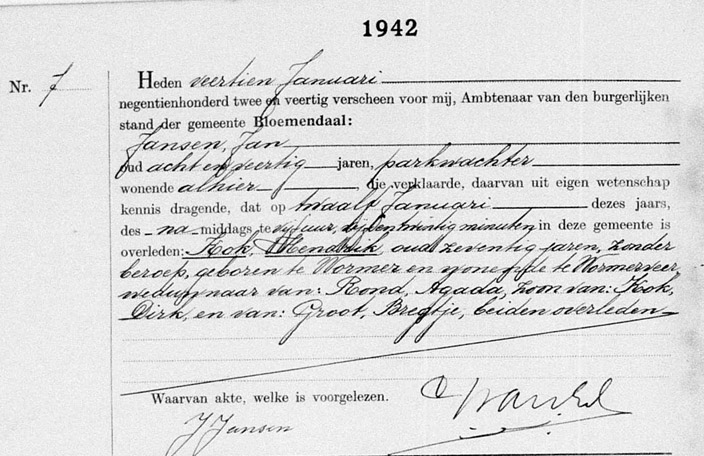 1942
Nr. 7
Heden veertien Januari
negentienhonderd twee en veertig verscheen voor mij, Ambtenaar van den burgerlijken
stand der gemeente Bloemendaal:
Jansen, Jan
oud acht en veertig jaren, parkwachter
wonende alhier, die verklaarde, daarvan uit eigen wetenschap
kennis dragende, dat op twaalf Januari dezes jaars,
des na-middags te vijf uur, vijf en twintig minuten in deze gemeente is
overleden: Kok, Hendrik, oud zeventig jaren, zonder
beroep, geboren te Wormer en wonende te Wormerveer,
weduwnaar van: Rond, Agada, zoon van: Kok,
Dirk, en van: Groot, Bregtje, beiden overleden
Waarvan akte, welke is voorgelezen.
J Jansen